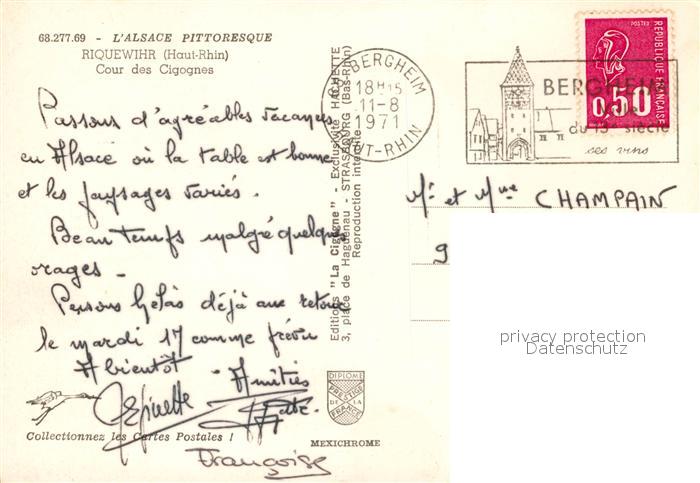 68.277.69 - L'ALSACE PITTORESQUE
RIQUEWIHR (Haut-Rhin)
Cour des Cigognes
Passons d'agréables vacances
en Alsace où la table est bonne
et les paysages variés.
Beau temps malgré quelques
orages -
Pensons hélas déjà au retour
le mardi 17 comme prévu
A bientôt - Amitiés
Françoise
Collectionnez les Cartes Postales !
Editions "La Cigogne" - Exclusivité HACHETTE
3, place de Haguenau - STRASBOURG (Bas-Rhin)
Reproduction interdite
DIPLOME
PRESTIGE
DE LA
FRANCE
MEXICHROME
BERGHEIM
18H15
11-8
1971
HAUT-RHIN
BERGHEIM
du 13e siècle
ses vins
POSTES
REPUBLIQUE FRANCAISE
0,50
Mr et Mme CHAMPAIN
9
privacy protection
Datenschutz